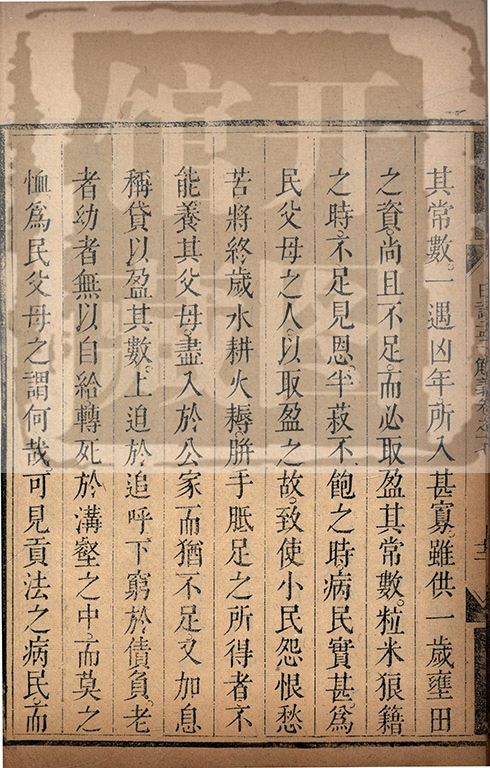 其常數。一遇凶年。所入甚寡。雖供一歲壅田
之資。尚且不足。而必取盈其常數。粒米狼籍
之時。不足見恩。半菽不飽之時。病民實甚。爲
民父母之人。以取盈之故。致使小民怨恨愁
苦。將終歲水耕火耨胼手胝足之所得者。不
能養其父母。盡入於公家而猶不足。又加息
稱貸以盈其數。上迫於追呼。下窮於債負。老
者幼者無以自給。轉死於溝壑之中。而莫之
恤。爲民父母之謂何哉。可見貢法之病民。而
日講四書解義卷之十七
開
圖
舘
藏